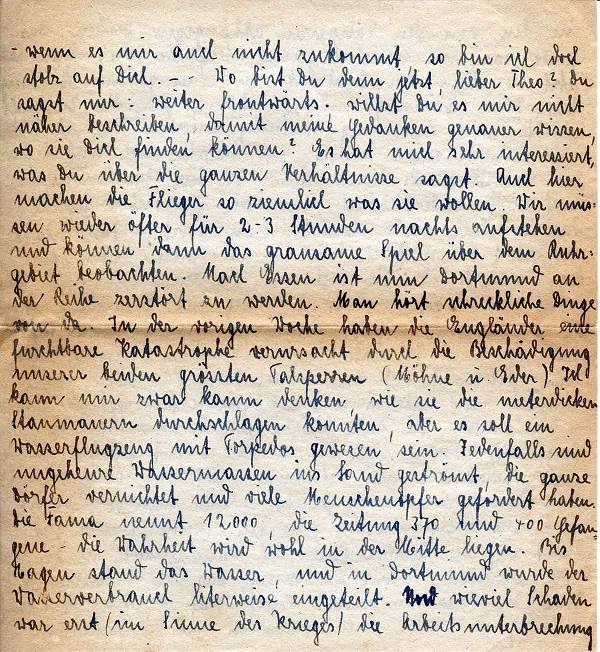 - wenn es mir auch nicht zukommt, so bin ich doch
stolz auf Dich. - - Wo bist Du denn jetzt, lieber Theo? Du
sagst nur: weiter frontwärts. willst Du es mir nicht
näher beschreiben, damit meine Gedanken genauer wissen,
wo sie Dich finden können? Es hat mich sehr interessiert,
was Du über die ganzen Verhältnisse sagst. Auch hier
machen die Flieger so ziemlich was sie wollen. Wir müs-
sen wieder öfter für 2-3 Stunden nachts aufstehen
und können dann das grausame Spiel über dem Ruhr-
gebiet beobachten. Nach Essen ist nun Dortmund an
der Reihe zerstört zu werden. Man hört schreckliche Dinge
von da. In der vorigen Woche haben die Engländer eine
furchtbare Katastrophe verursacht durch die Beschädigung
unserer beiden grössten Talsperren (Möhne u. Eder) Ich
kann mir zwar kaum denken, wie sie die meterdicken
Staumauern durchschlagen konnten, aber es soll ein
Wasserflugzeug mit Torpedos gewesen sein. Jedenfalls sind
ungeheure Wassermassen ins Land geströmt, die ganze
Dörfer vernichtet und viele Menschenopfer gefordert haben.
Die Fama nennt 12000, die Zeitung 370 und 400 Gefan-
gene - die Wahrheit wird wohl in der Mitte liegen. Bis
Hagen stand das Wasser, und in Dortmund wurde der
Wasserverbrauch literweise eingeteilt. Und wieviel Schaden
war erst (im Sinne des Krieges) die Arbeitsunterbrechung